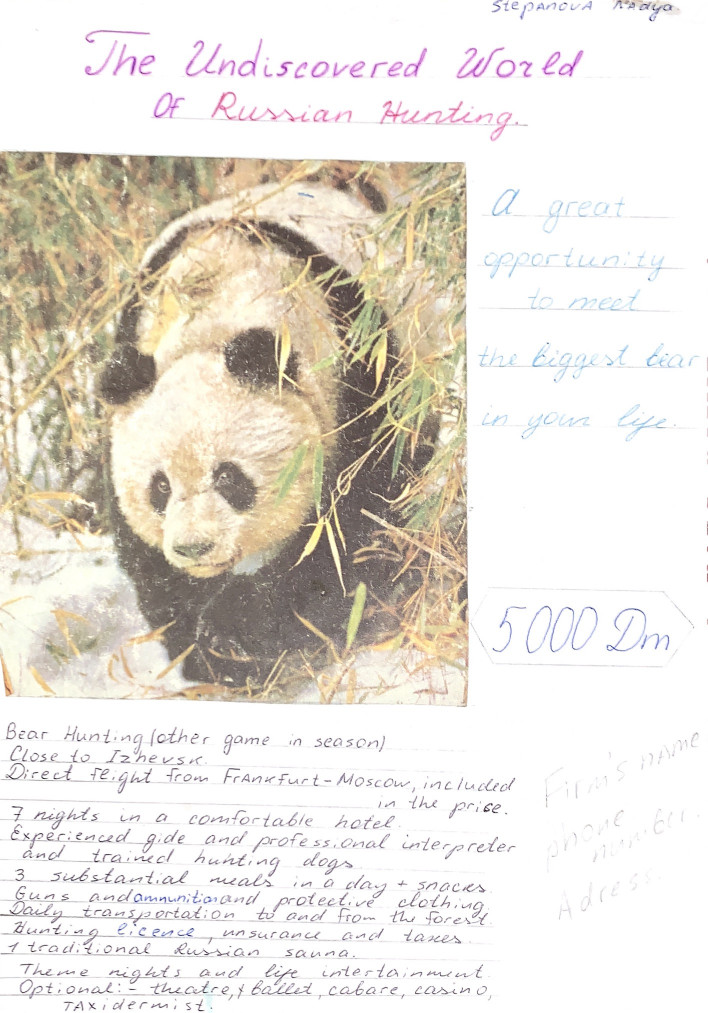 Stepanova Nadya
The Undiscovered World
Of Russian Hunting.
A great
opportunity
to meet
the biggest bear
in your life.
5000 Dm
Bear Hunting (other game in season)
Close to Izhevsk.
Direct flight from Frankfurt-Moscow, included
in the price.
7 nights in a comfortable hotel.
Experienced gide and professional interpreter
and trained hunting dogs
3 substantial meals in a day + snacks
Guns and ammunition and protective clothing
Daily transportation to and from the forest.
Hunting licence, unsurance and taxes.
1 traditional Russian sauna.
Theme nights and life intertainment.
Optional: - theatre, ballet, cabare, casino,
TAxidermist.
Firm's name
phone
number.
Adress.